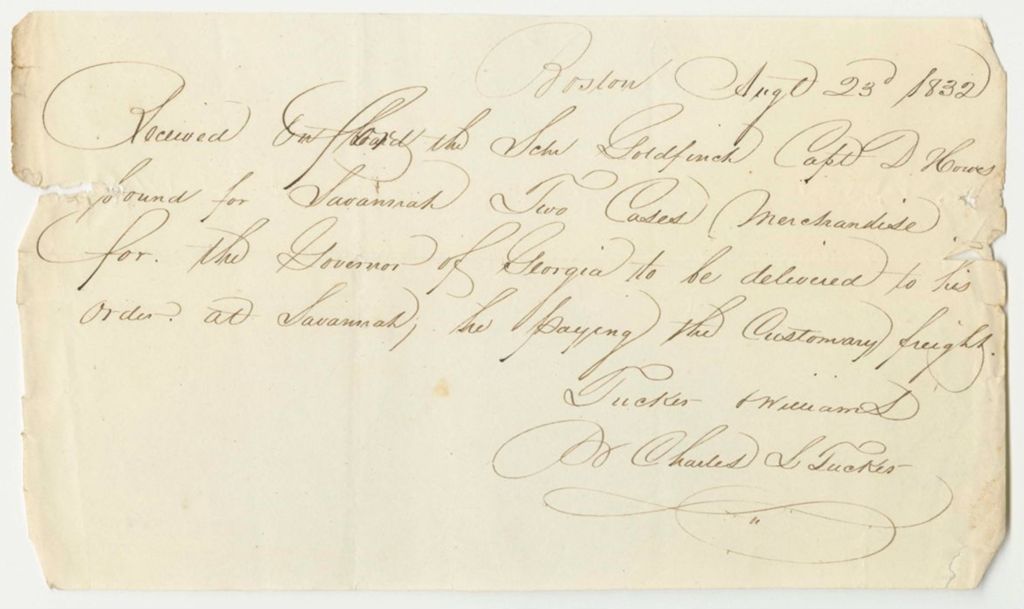 Boston Augt 23d 1832
Received on board the Schr Goldfinch Capt D. Howes
bound for Savannah Two Cases Merchandise
for the Governor of Georgia to be delivered to his
order at Savannah, he paying the Customary freight.
Tucker & Williams
Pr Charles L Tucker